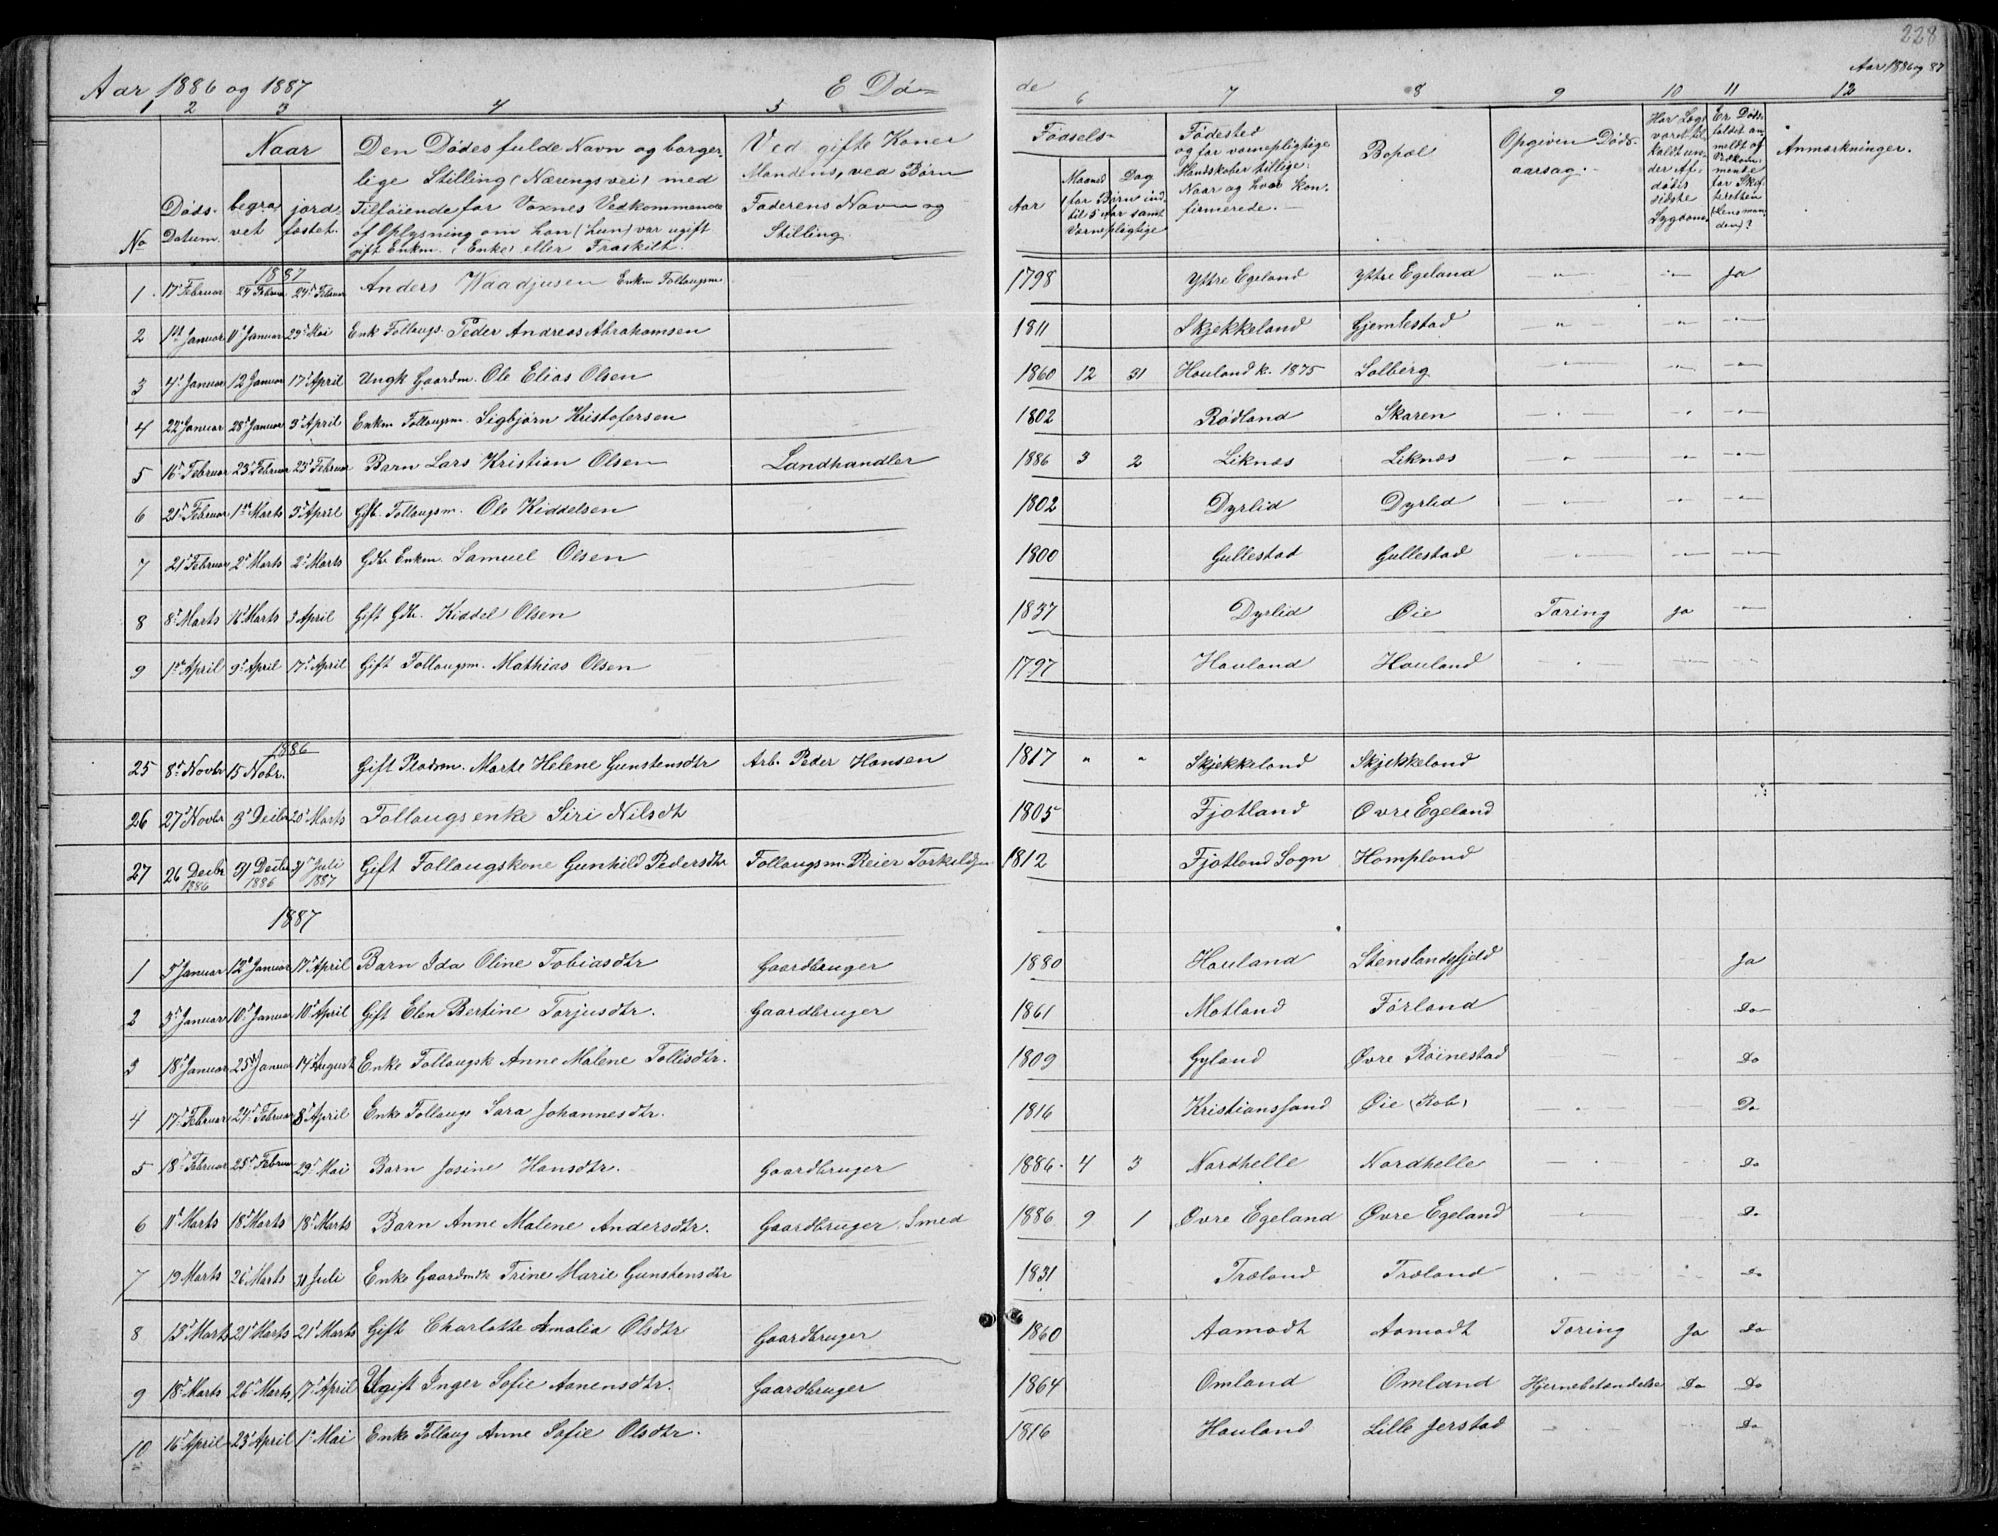 228
Aar 1886 og 1887 E Dø- de Aar 1886 og 87
1 2 3 4 5 6 7 8 9 10 11 12
No
Døds-Datum.
Naar
begravet
jordfæstet.
Den Dødes fulde Navn og borgerlige Stilling (Næringsvei) med Tilføiende for Voxnes Vedkommende af Oplysning om han (hun) var ugift gift Enkm. (Enke) eller Fraskilt.
Ved gifte Koner Mandens, ved Børn Faderens Navn og Stilling.
Fødsels-
Aar
Maaned Dag
(for Børn indtil 5 Aar samt Værnepligtige
Fødested og for værnepligtige Mandskaber tillige: Naar og hvor konfirmerede.
Bopæl
Opgiven Dødsaarsag.
Har Læge været tilkaldt under Afdødes sidste Sygdom
Er Dødsfaldet anmeldt af Vedkommende for Skifteretten (Lensmanden)?
Anmærkninger.
1887
1 17 Februar 24 Februar 24 Februar Anders Waadjusen Enkm Follaugsm 1798 Yttre Egeland Yttre Egeland " " Ja
2 1st Januar 11 Januar 29 Mai Enk Follaugs. Peder Andreas Abrahamsen 1811 Skjekkeland Gjemlestad " " "
3 4 Januar 12 Januar 17 April Ungk Gaardm. Ole Elias Olsen 1860 12 31 Houland k. 1875 Solberg " " "
4 22 Januar 28 Januar 3 April Enkm Follaugsm. Sigbjørn Kristofersen 1802 Rødland Skaren " " "
5 16 Februar 23 Februar 23 Februar Barn Lars Kristian Olsen Landhandler 1886 3 2 Liknæs Liknæs " " "
6 21 Februar 1ste Marts 3 April Gift. Follaugsm. Ole Kiddelsen 1802 Dyrlid Dyrlid " " "
7 21 Februar 2 Marts 2 Marts Gdbr Enkm. Samuel Olsen 1800 Gullestad Gullestad " " "
8 8 Marts 16 Marts 3 April Gift Gdbr. Kiddel Olsen 1837 Dyrlid Øie Tæring ja "
9 1ste April 9 April 17 April Gift Follaugsm. Mathias Olsen 1797 Houland Houland " " "
1886
25 8 Novbr 15 Nobr. Gift Pladsm. Marte Helene Gunstensdtr Arb. Peder Hansen 1817 " " Skjekkeland Skjekkeland
26 27 Novbr 3 Decbr 20 Marts Follaugsenke Siri Nilsdtr 1805 Fjotland Øvre Egeland
27 26 Decbr 1886 31 Decbr 1886 31 Juli 1887 Gift Follaugskone Gunhild Pedersdtr Follaugsm. Reier Torkildsen 1812 Fjotland Sogn Hompland
1887
1 5 Januar 12 Januar 17 April Barn Ida Oline Tobiasdtr Gaardbruger 1880 Houland Stenslandsfjeld Ja
2 3 Januar 10 Januar 10 April Gift Elen Bertine Torjusdtr. Gaardbruger 1861 Motland Førland Do
3 18 Januar 25 Januar 14 August Enke Follaugsk Anne Malene Tollisdtr. 1809 Gyland Øvre Røinestad Do
4 17 Februar 24 Februar 8 April Enke Follaugs Sara Johannesdtr. 1816 Kristianssand Øie (Rob) " Do
5 18 Februar 25 Februar 29 Mai Barn Josine Hansdtr. Gaardbruger 1886 4 3 Nordhelle Nordhelle Do
6 11 Marts 18 Marts 18 Marts Barn Anne Malene Andersdtr. Gaardbruger, Smed 1886 9 1 Øvre Egeland Øvre Egeland " Do
7 19 Marts 26 Marts 31 Juli Enke Gaardmdk Trine Marie Gunstensdtr 1831 Træland Træland Do
8 13 Marts 21 Marts 21 Marts Gift Charlotte Amalia Olsdtr Gaardbruger 1860 Aamodt Aamodt Tæring Ja Do
9 18 Marts 26 Marts 17 April Ugift Inger Sofie Aanensdtr. Gaardbruger 1864 Omland Omland Hjernebetændelse Do Do
10 16 April 23 April 1 Mai Enke Follaug Anne Sofie Olsdtr. 1816 Houland Lille Jerstad Do